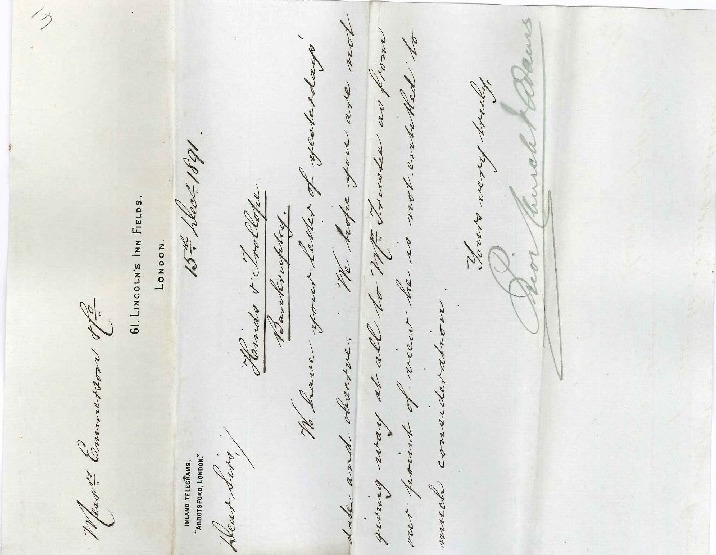 61, LINCOLN'S INN FIELDS,
LONDON.
INLAND TELEGRAMS,
"ABBOTSFORD, LONDON."
15th Dec 1891.
Dear Sirs/
Hinds & Trollope
Bankruptcy.
We have your letter of yesterdays'
date and observe. We hope you are not
giving way at all to Mr Trustee as from
our point of view he is not entitled to
much consideration.
Yours very truly,
Prior Church & Adams
Messrs Emmerson & Co